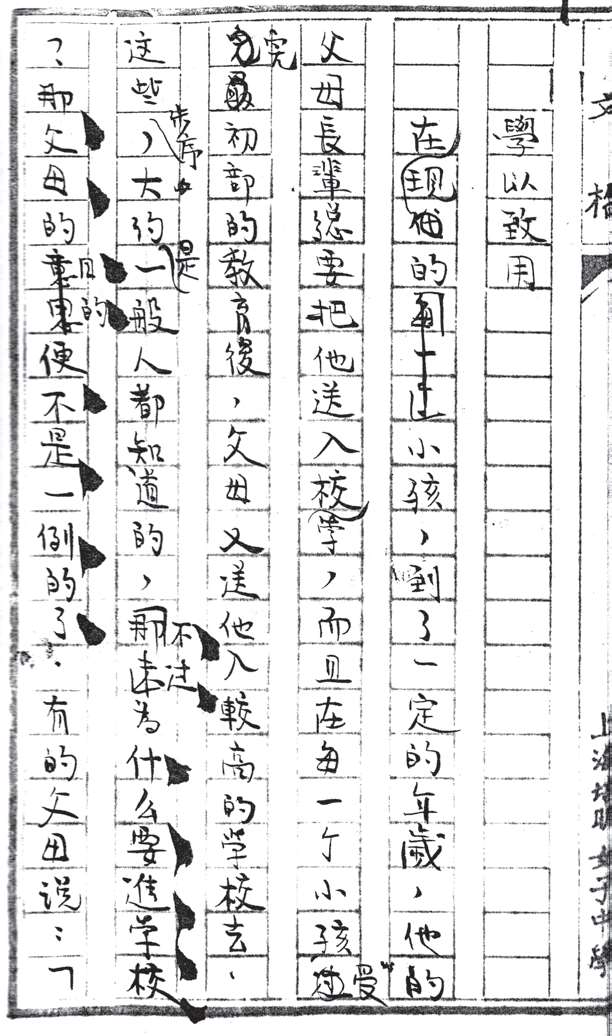 學以致用
在现代的每一个小孩，到了一定的年歲，他的
父母長輩總要把他送入校學，而且在每一个小孩受
完最初部的教育後，父母又送他入較高的学校去、
这些步序，大约是一般人都知道的，那不过为什么要進学校
？那父母的意思目的便不是一例的了．有的父母说：「